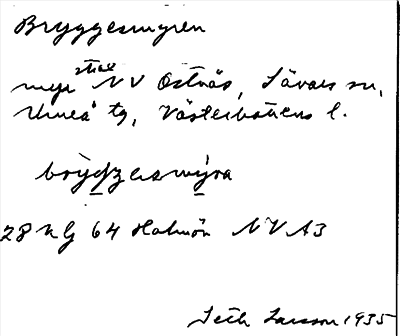 Bryggesmyren
stice
myr NV Ostnäs, Sävars sn,
Umeå tg, Västerbottens l.
brýǥʒesmýra
28 KG 64 Holmön NV A3
Seth Larsson 1935